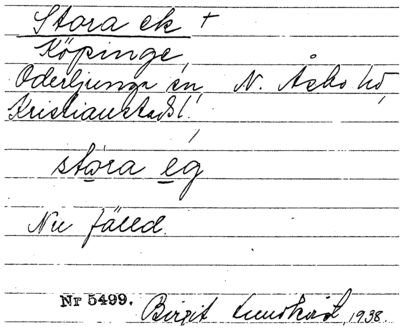 Stora ek +
Köpinge
Oderljunga sn, N. Åsbo hd,
Kristianstads l.
stora eg
Nu fälld.
Nr 5499. Birgit 1938.